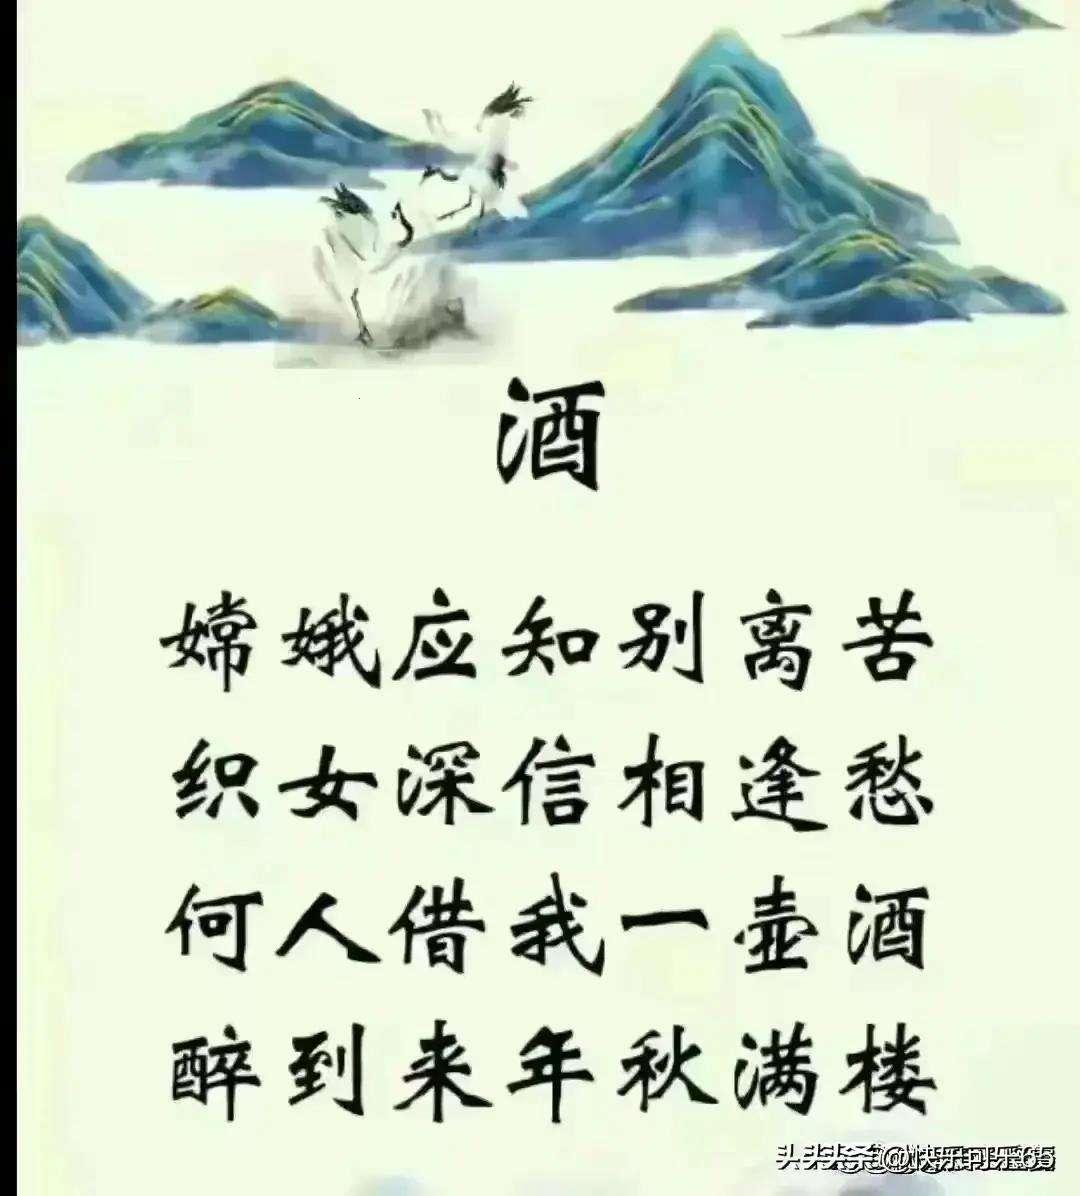 酒
嫦娥应知别离苦
织女深信相逢愁
何人借我一壶酒
醉到来年秋满楼